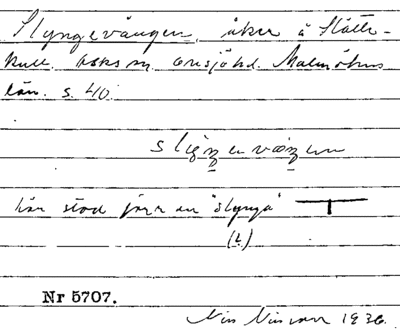 Slyngevången, åker å Slätte-
kull. Asks sn. Onsjöhd. Malmöhus
län. s. 40.
här stod förr en "slynga"
(t)
Nr 5707.
Nils Nilsson 1936.